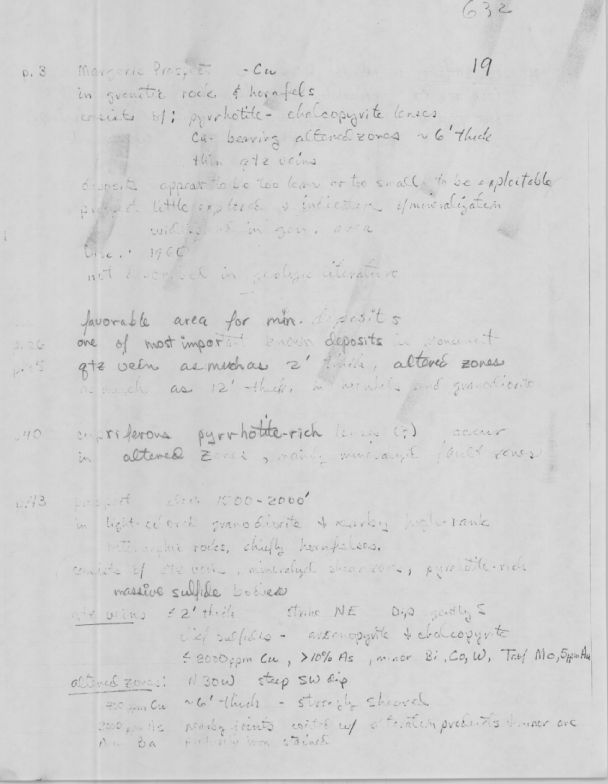 632
19
p. 3 Margerie Prospect - Cu
in granitic rock & hornfels
consists of: pyrrhotite-chalcopyrite lenses
Cu-bearing altered zones ~6' thick
thin qtz veins
deposits appear to be too lean or too small to be exploitable
little explored & indication of mineralization
in gen. area
1960
not in geologic literature
favorable area for min. deposits
p.26 one of most important known deposits in monument
qtz vein as much as 2' thick, altered zones
as much as 12' thick, in hornfels and granodiorite
p.40 cupriferous pyrrhotite-rich lenses (?) occur
in altered zones, mainly mineralized fault zones
p.43 prospect elev. 1500-2000'
in light-colored granodiorite & nearby high-rank
metamorphic rocks, chiefly hornfelses.
consists of qtz veins, mineralized shear zones, pyrrhotite-rich
massive sulfide bodies
qtz veins ≤ 2' thick strike NE Dip gently S
chief sulfides - arsenopyrite & chalcopyrite
≤ 8000 ppm Cu, >10% As, minor Bi, Co, W, Tr of Mo, 5ppm Au
altered zones: N30W steep SW dip
700 ppm Cu ~6' thick - strongly sheared
2000 ppm As nearby joints coated w/ alteration products & minor ore
Ba iron stained